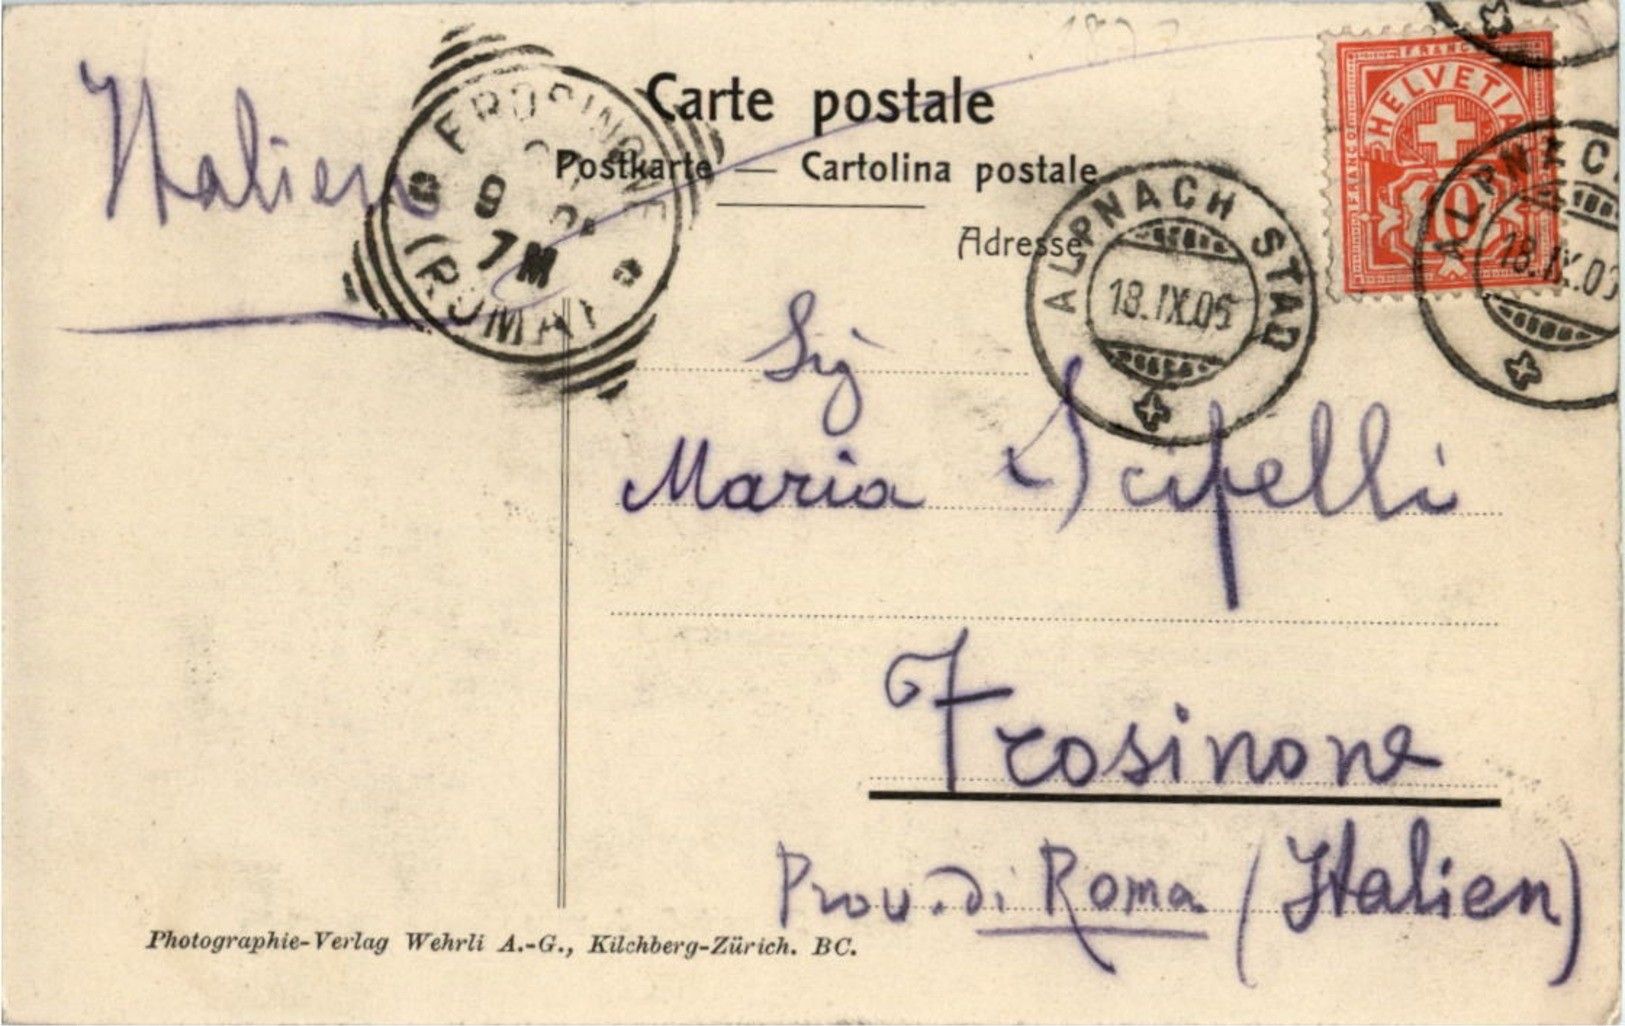 1877
Carte postale
Postkarte — Cartolina postale
Adresse
Italien
FROSINONE
9
7 M
(ROMA)
ALPNACH STAD
18.IX.05
FRANCO
HELVETIA
FRANCO
10
ALPNACH
18.IX.05
Sig
Maria Scifelli
Frosinone
Prov. di Roma (Italien)
Photographie-Verlag Wehrli A.-G., Kilchberg-Zürich. BC.